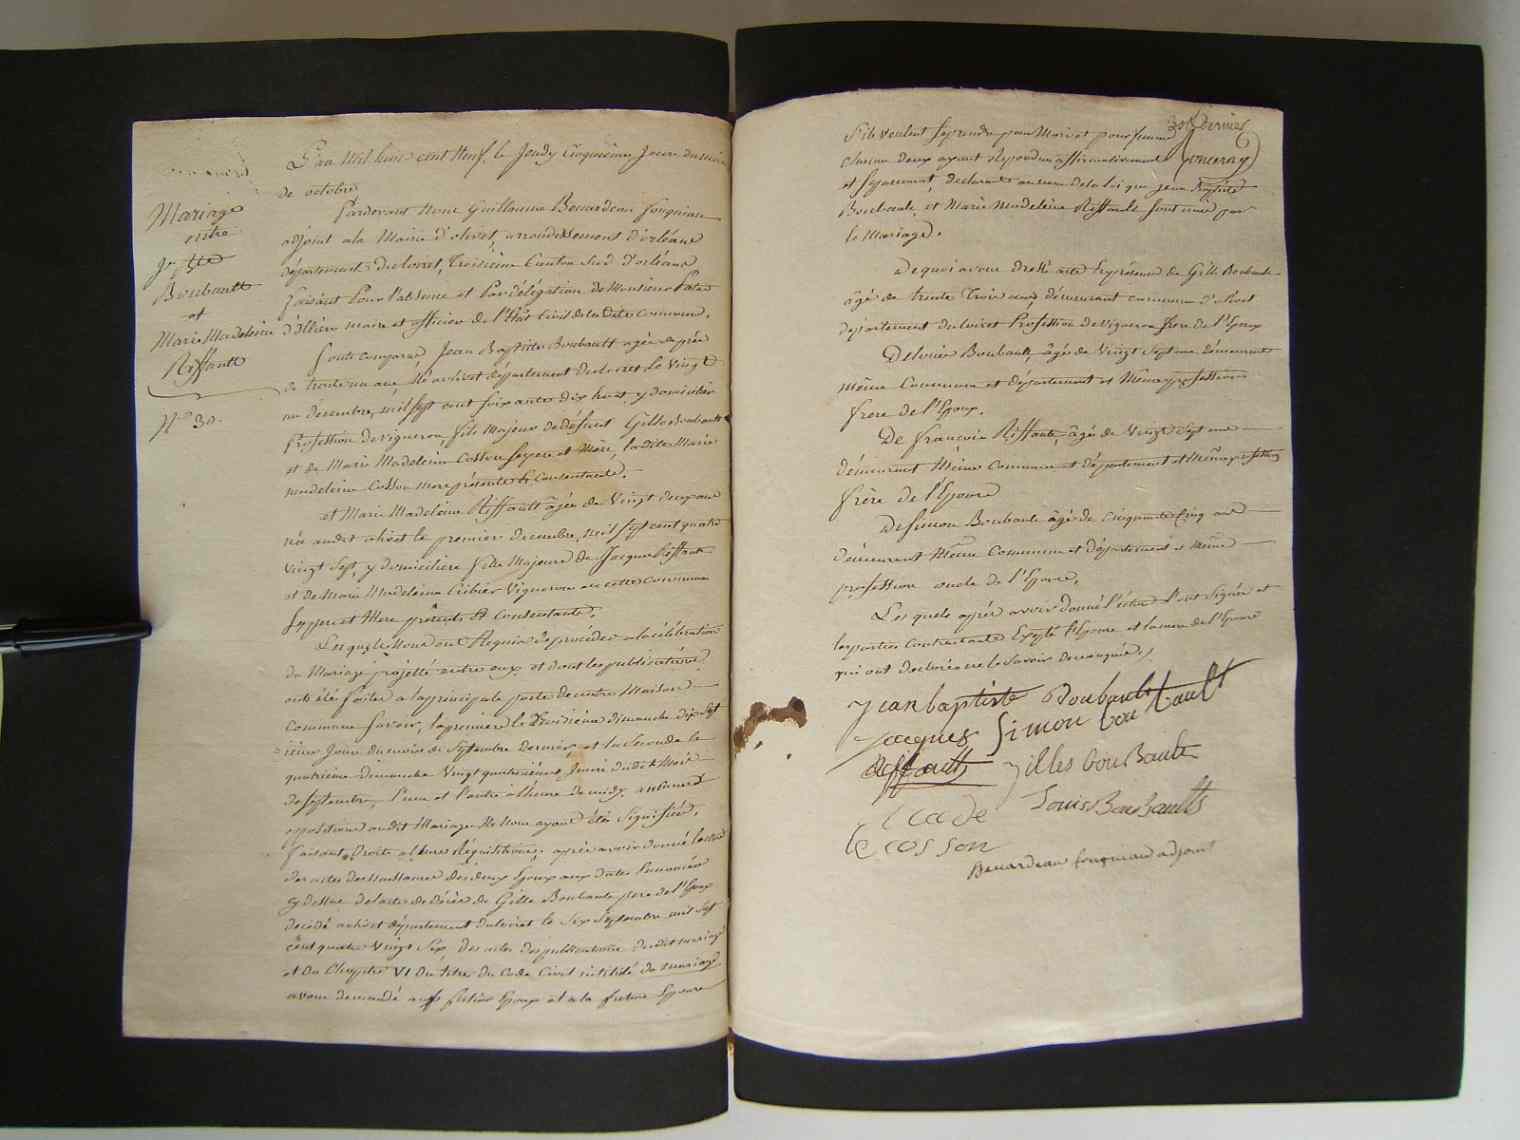 Mariage
entre
Jn Bte
Boubault
et
Marie Madeleine
Riffault
No 30.
L'an Mil huit cent Neuf, le Jeudy Cinquieme Jour du mois
de octobre
Pardevant Nous Guillaume Beuardeau fougneau
adjoint a la Mairie d'olivet, arrondissement d'orléans
département du Loiret, Troisieme Canton Sud d'orléans
faisant Pour l'absence et Par délégation de Monsieur
d'illiers maire et officier de l'Etat Civil de la dite Commune.
Sont comparus, Jean Baptiste Boubault agée de près
de trente un ans, Né a olivet département du Loiret le Vingt
un décembre, mil sept cent soixante dix huit, y domicilié
Profession de vigneron, fils Majeur de défunt Gille Boubault
et de Marie Madeleine Cosson ses pere et Mere, la dite Marie
madeleine Cosson mere présente & Consentante.
et Marie Madeleine Riffault agée de Vingt deux ans
née audit olivet le premier decembre, mil sept cent quatre
vingt Sept, y domiciliée fille Majeure de Jacque Riffault
et de Marie Madeleine Cribier Vignerons de cette Commune
ses pere et Mere présents & Consentants.
Lesquels Nous ont Requis de proceder a la célébration
du Mariage projetté entre eux et dont les publications
ont été faites a la principale porte de notre Maison
Commune Savoir, la premiere le Troisieme dimanche dix Sept
ieme Jour du mois de Septembre dernier, et la Seconde le
quatrieme dimanche Vingt quatrieme Jour dudit Mois
de Septembre, l'une et l'autre a l'heure de midy, aucune
opposition audit Mariage Ne Nous ayant étée Signifiée,
faisant Droit a leurs Réquisitions, après avoir donné lecture
des actes de Naissance des deux Epoux aux dates
cy dessus de l'acte de décès de Gille Boubault pere de l'Epoux
décédé a olivet département du Loiret le Six Septembre mil Sept
cent quatre Vingt Six, des actes des publications dudit mariage
et du Chapitre VI du titre du Code Civil intitulé du mariage
avons demandé aux futur Epoux et a la future Epouse
30 Dernier
S'ils veulent se prendre pour Mari et pour femme
Chacun deux ayant répondu affirmativement
et séparement, declarons au nom de la loi que Jean Baptiste
Boubault, et Marie Madeleine Riffault sont unis par
le Mariage.
De quoi avons dressé acte En présence de Gille Boubault
âgé de trente Trois ans, démeurant commune d'olivet
département du Loiret Profession de vigneron frere de l'Epoux
De Louis Boubault, âgé de Vingt Sept ans démeurant
même Commune et département et Même profession
frere de l'Epoux.
De françois Riffault, âgé de Vingt Sept ans
démeurant Même Commune et département et Même profession
frère de l'Epouse
De Simon Boubault âgé de Cinquante Cinq ans
démeurant Même Commune et département et même
profession oncle de l'Epouse.
Les quels après avoir donné lecture l'ont Signés et
les parties Contractantes Excepté l'Epouse et la mere de l'Epouse
qui ont declarés ne le Savoir de ce enquis.
Jean baptiste Boubault
Jacques Simon bou bault
Reffault Gilles bouBault
Louis BouBaults
cosson
Beuardeau fougneau adjoint